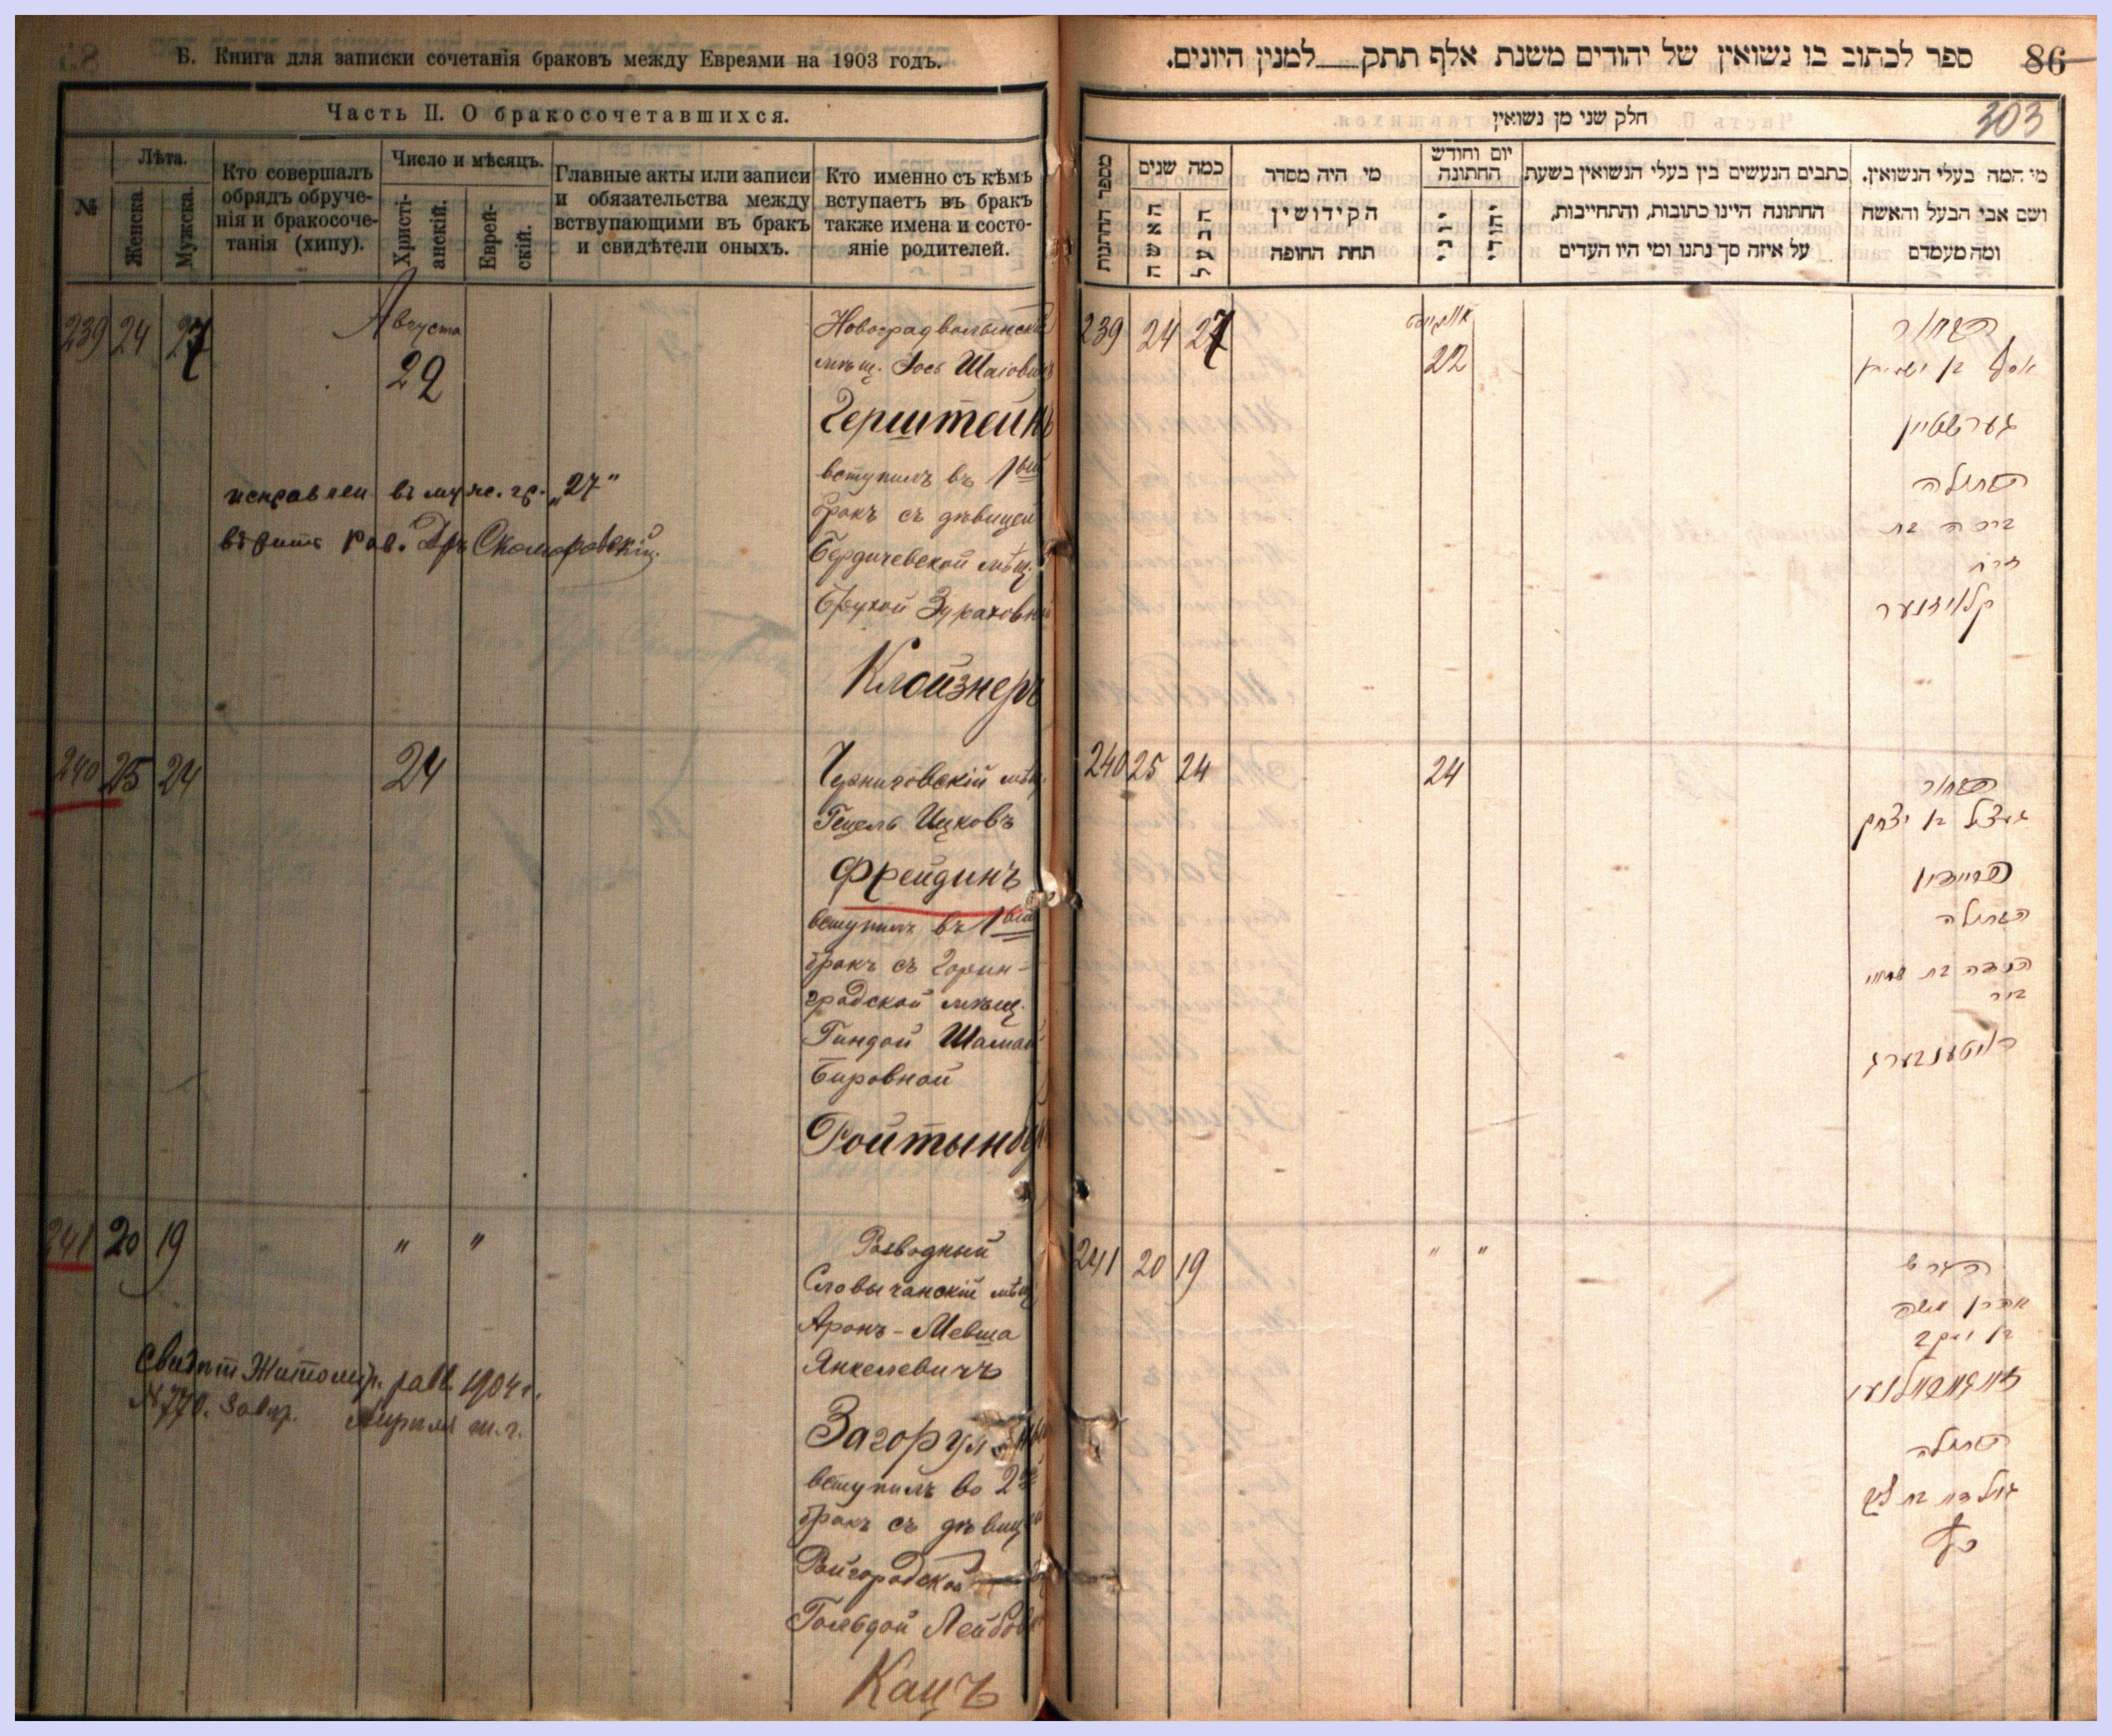 Б. Книга для записки сочетанія браковъ между Евреями на 1903 годъ.
Часть II. О бракосочетавшихся.
№
Лѣта.
Женска.
Мужска.
Кто совершалъ
обрядъ обруче-
нія и бракосоче-
танія (хипу).
Число и мѣсяцъ.
Христі-
анскій.
Еврей-
скій.
Главные акты или записи
и обязательства между
вствупающими въ бракъ
и свидѣтели оныхъ.
Кто именно съ кѣмъ
вступаетъ въ бракъ
также имена и состо-
яніе родителей.
239 24 27
Августа
22
Новоградволынскій
мѣщ. Іось Шаіовичъ
Герштейнъ
вступилъ въ 1вый
бракъ съ дѣвицей
Бердичевской мѣщ.
Брухой Зураховной
Клойзнеръ
исправлен въ муж. гр. „27“
вѣритъ рав. Дръ Скоморовскій
240 25 24
24
Черниговскій мѣщ.
Гецель Ицковъ
Фрейдинъ
вступилъ въ 1вый
бракъ съ Горин-
градской мѣщ.
Гиндой Шамай
Бировной
Ройтынбер
241 20 19
" "
Разводный
Словычанскій мѣщ.
Аронъ-Мевша
Янкелевичъ
Загорул
вступилъ во 2ой
бракъ съ дѣвицей
Райгородской
Гольдой Лейбов
Кацъ
Свидѣт Житомир. равв. 1904 г.
№ 770. Апрѣля т. г.
ספר לכתוב בו נשואין של יהודים משנת אלף תתק למנין היונים.
86
חלק שני מן נשואין
303
מספר החתונות
כמה שנים
האשה
הבעל
מי היה מסדר
הקידושין
תחת החופה
יום וחודש
החתונה
יוני
יהודי
כתבים הנעשים בין בעלי הנשואין בשעת
החתונה היינו כתובות, והתחייבות,
על איזה סך נתנו ומי היו העדים
מי המה בעלי הנשואין.
ושם אבי הבעל והאשה
ומה מעמדם
239 24 27
אווגוסט
22
הבחור
גערשטיין
הבתולה
ברכה בת
זרח
קלויזנער
240 25 24
24
הבחור
געצל בן יצחק
פריידין
הבתולה
הינדה בת שמאי
בער
רויטענבערג
241 20 19
" "
הגרוש
אהרן משה
בן יעקב
הבתולה
גולדה בת ליב
כץ